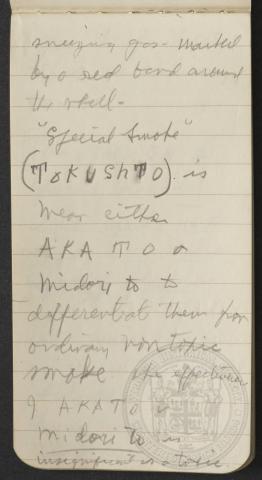 sneezing gas - marked
by a red band around
the shell -
"Special Smoke"
(TOKUSHTO) is
wear either
AKA TO or
Midori to to
different at them from
ordinary non toxic
smoke the effectiveness
of AKA TO or
Midori To is
insignificant as a toxic